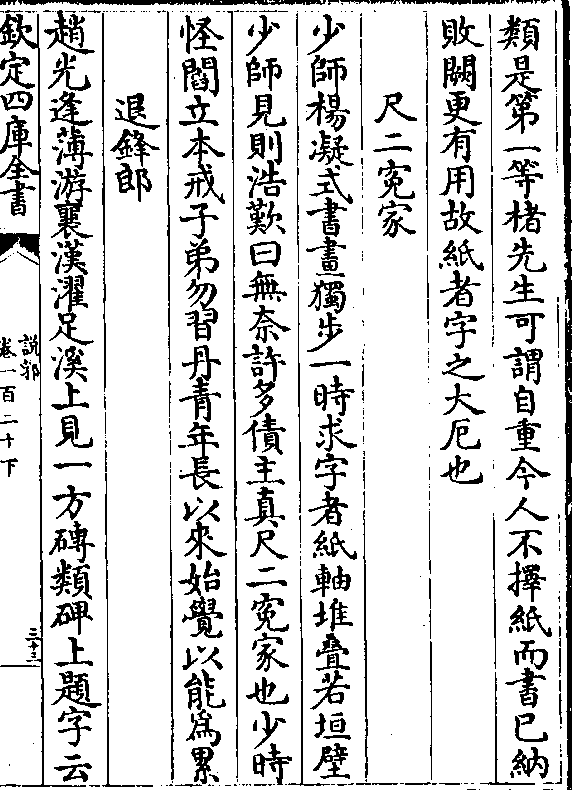 類是第一等楮先生可謂自重今人不擇紙而書已納
敗闕更有用故紙者字之大厄也
尺二寃家
少師楊凝式書畫獨步一時求字者紙軸堆疊若垣壁
少師見則浩歎曰無奈許多債主真尺二寃家也少時
怪閻立本戒子弟勿習丹青年長以來始覺以能為累
退鋒郎
趙光逢薄游襄漢濯足溪上見一方磚類碑上題字云
欽定四庫全書
說郛
卷一百二十下
三十三